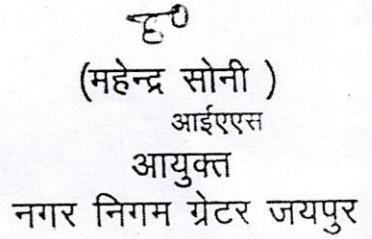 ह०
(महेन्द्र सोनी )
आईएएस
आयुक्त
नगर निगम ग्रेटर जयपुर